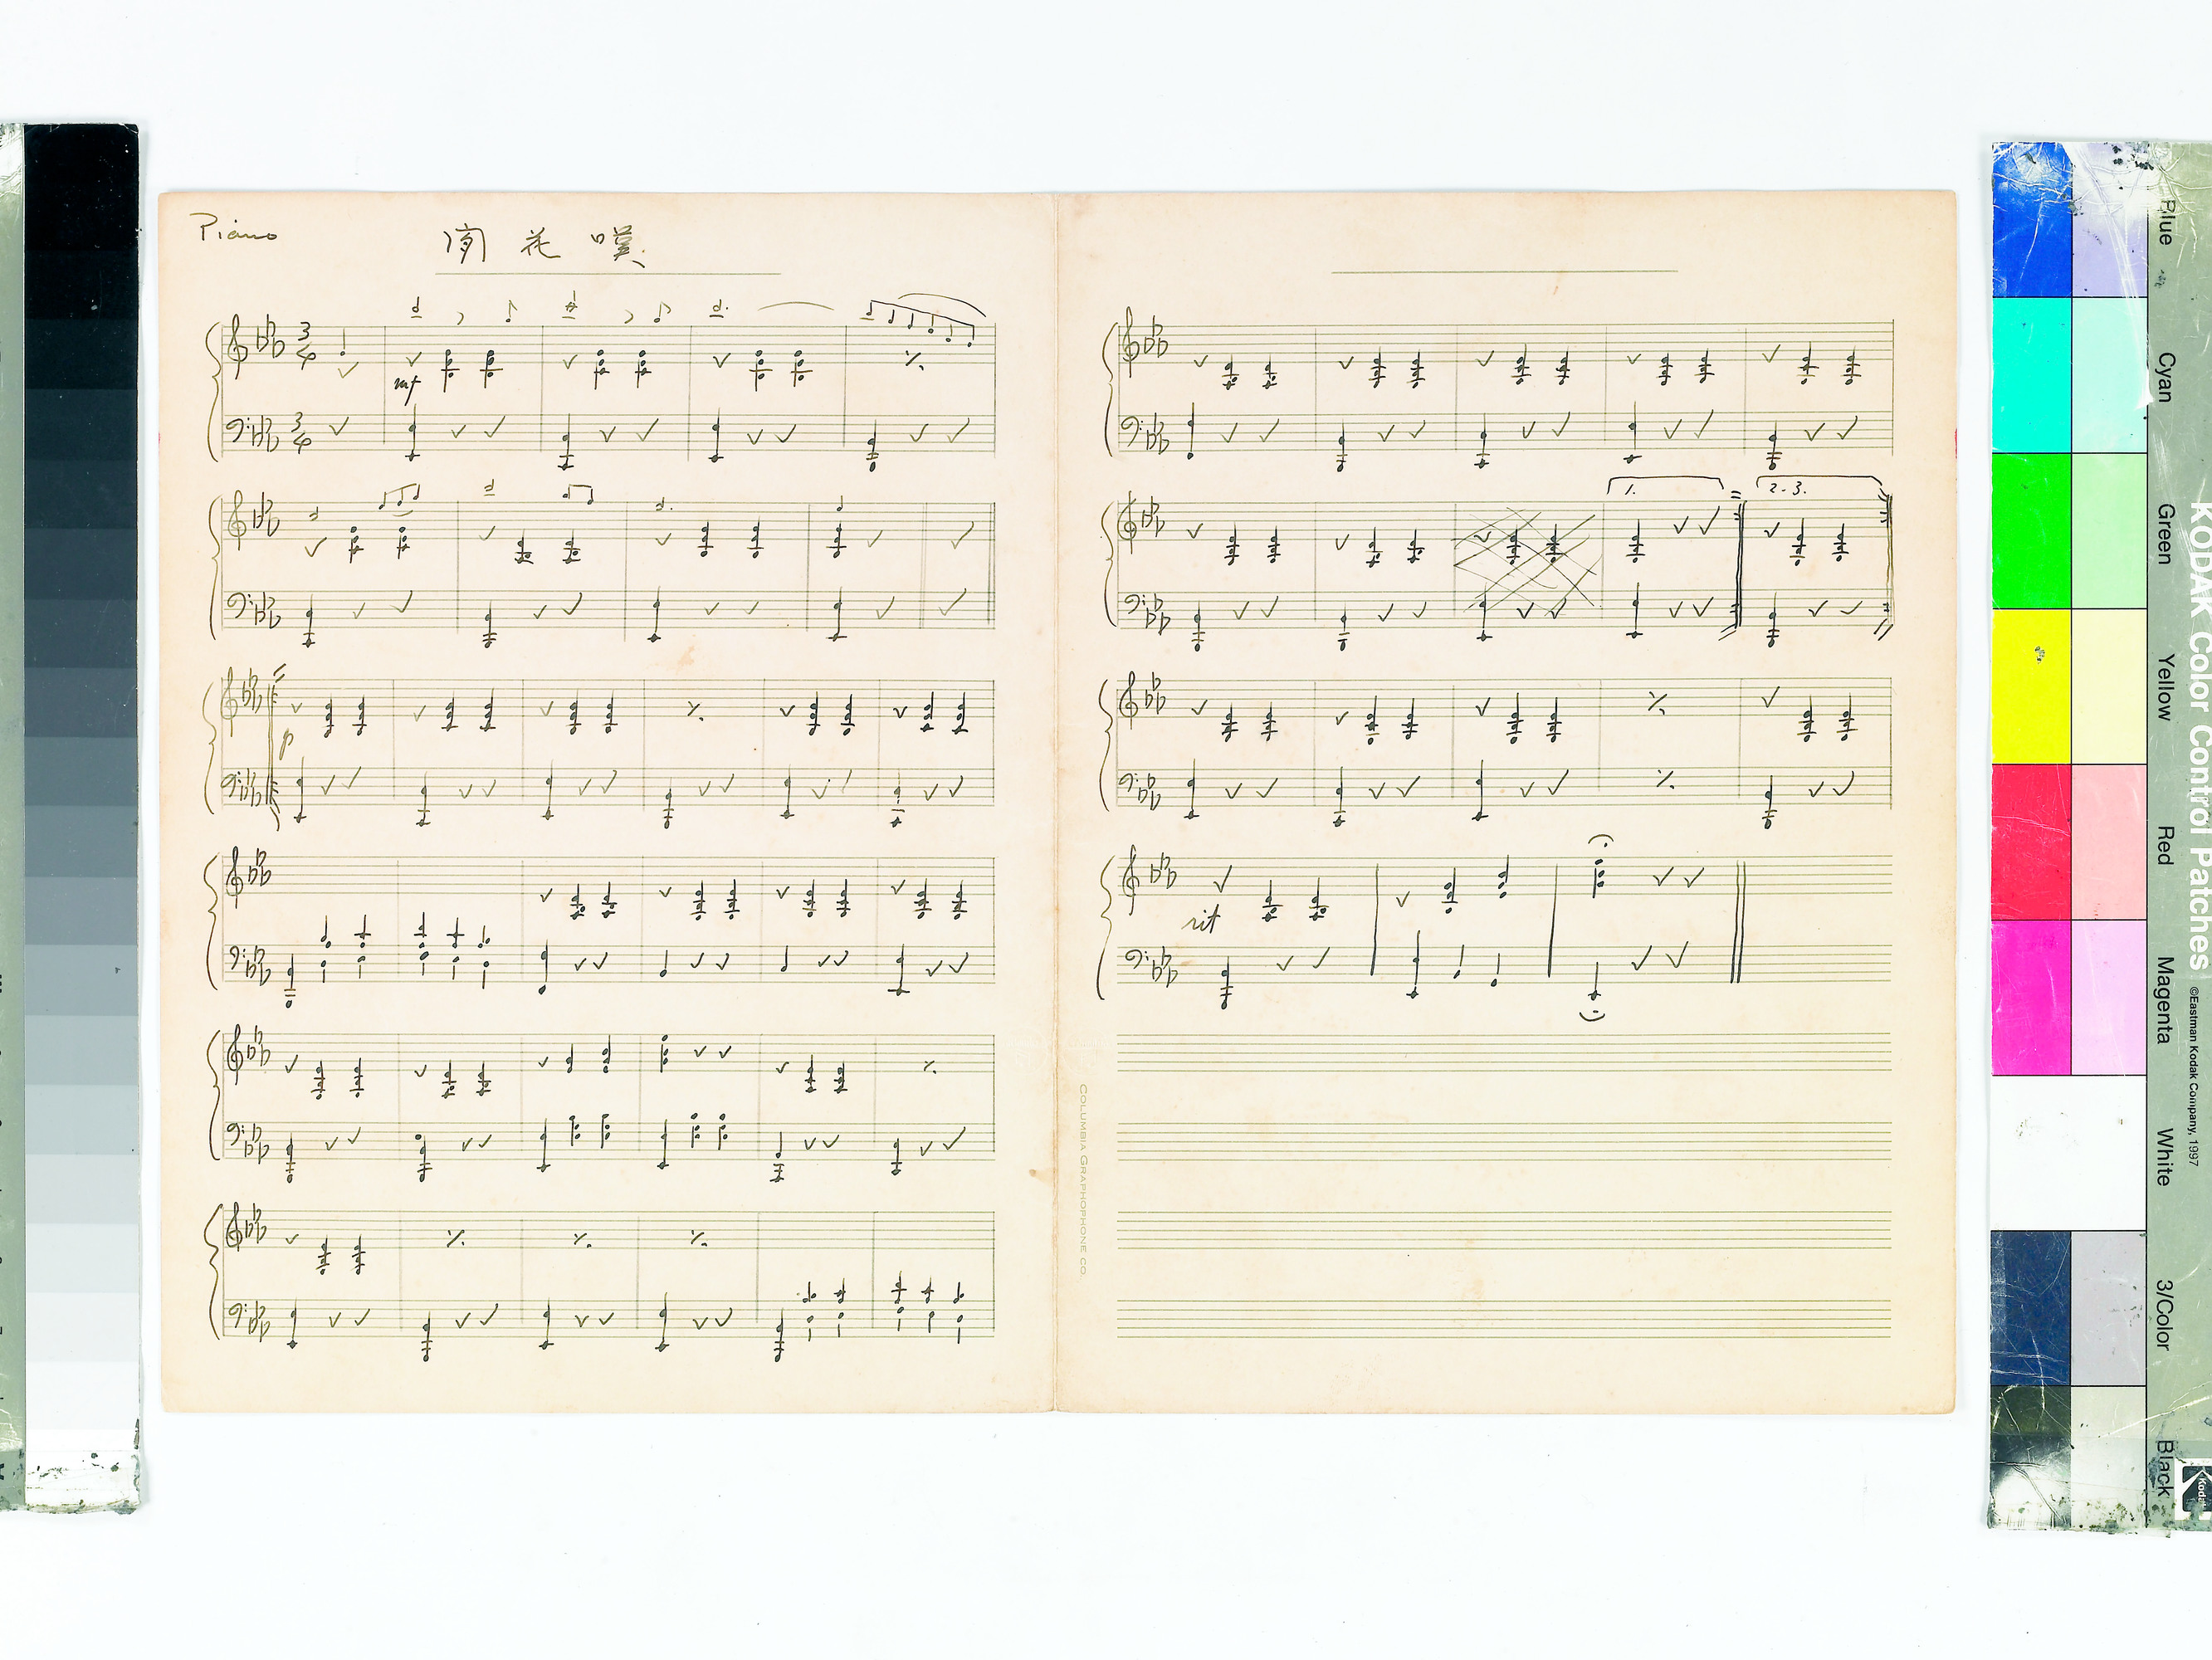 Piano
閒花嘆
3
4
3
4
mf
p
1.
2-3.
rit
COLUMBIA GRAPHOPHONE CO
KODAK Color Control Patches ©Eastman Kodak Company, 1997
Blue
Cyan
Green
Yellow
Red
Magenta
White
3/Color
Black
Kodak